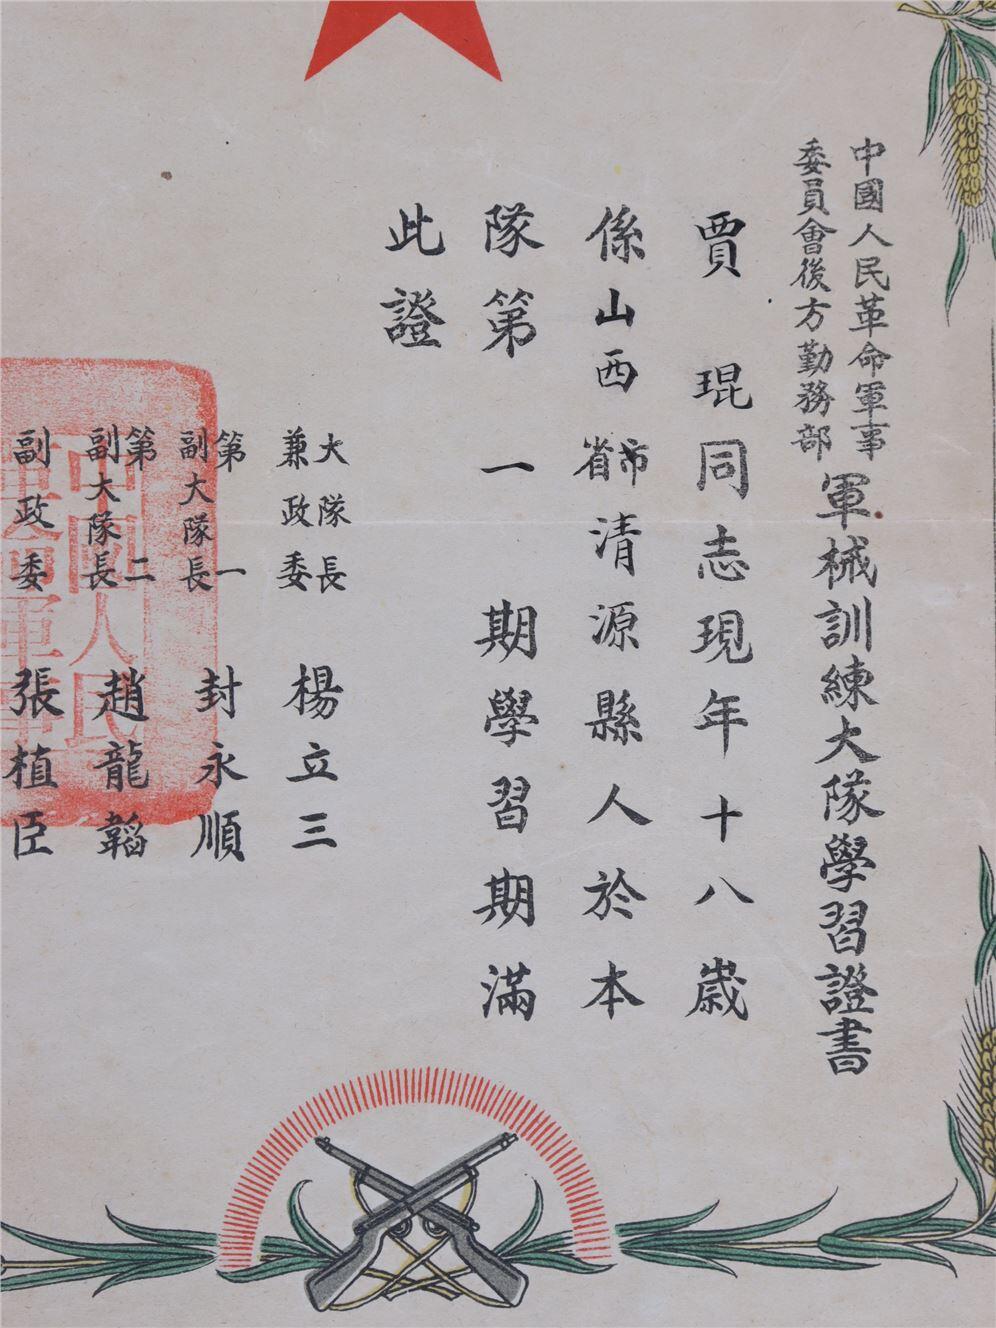 中國人民革命軍事
委員會後方勤務部
軍械訓練大隊學習證書
賈琨同志現年十八歲
係山西市省清源縣人於本
隊第一期學習期滿
此證
大隊長
兼政委
楊立三
第一
副大隊長
封永順
第二
副大隊長
趙龍韜
副政委
張植臣
中國人民